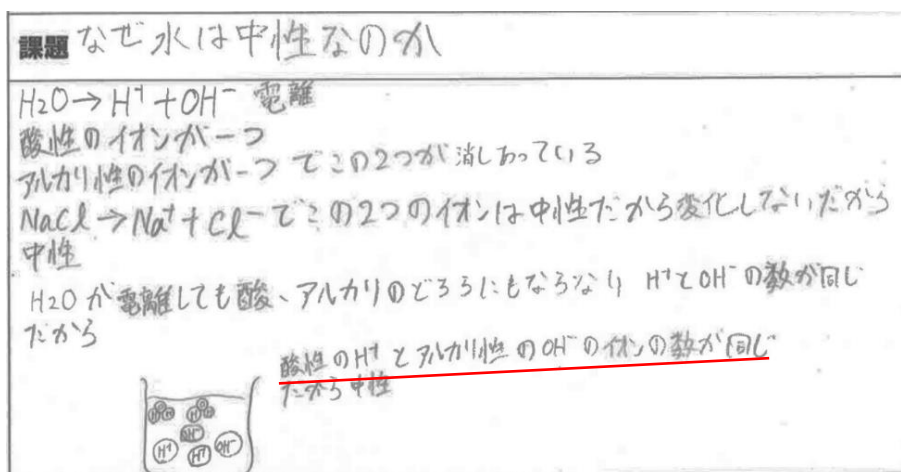 課題 なぜ水は中性なのか
H2O→H⁺+OH⁻ 電離
酸性のイオンが一つ
アルカリ性のイオンが一つ でこの2つが消しあっている
NaCl→Na⁺+Cl⁻でこの2つのイオンは中性だから変化しないだから
中性
H2Oが電離しても酸、アルカリのどちらにもならない H⁺とOH⁻の数が同じ
だから
酸性のH⁺とアルカリ性のOH⁻のイオンの数が同じ
だから中性
OH⁻
H⁺ H⁺ OH⁻